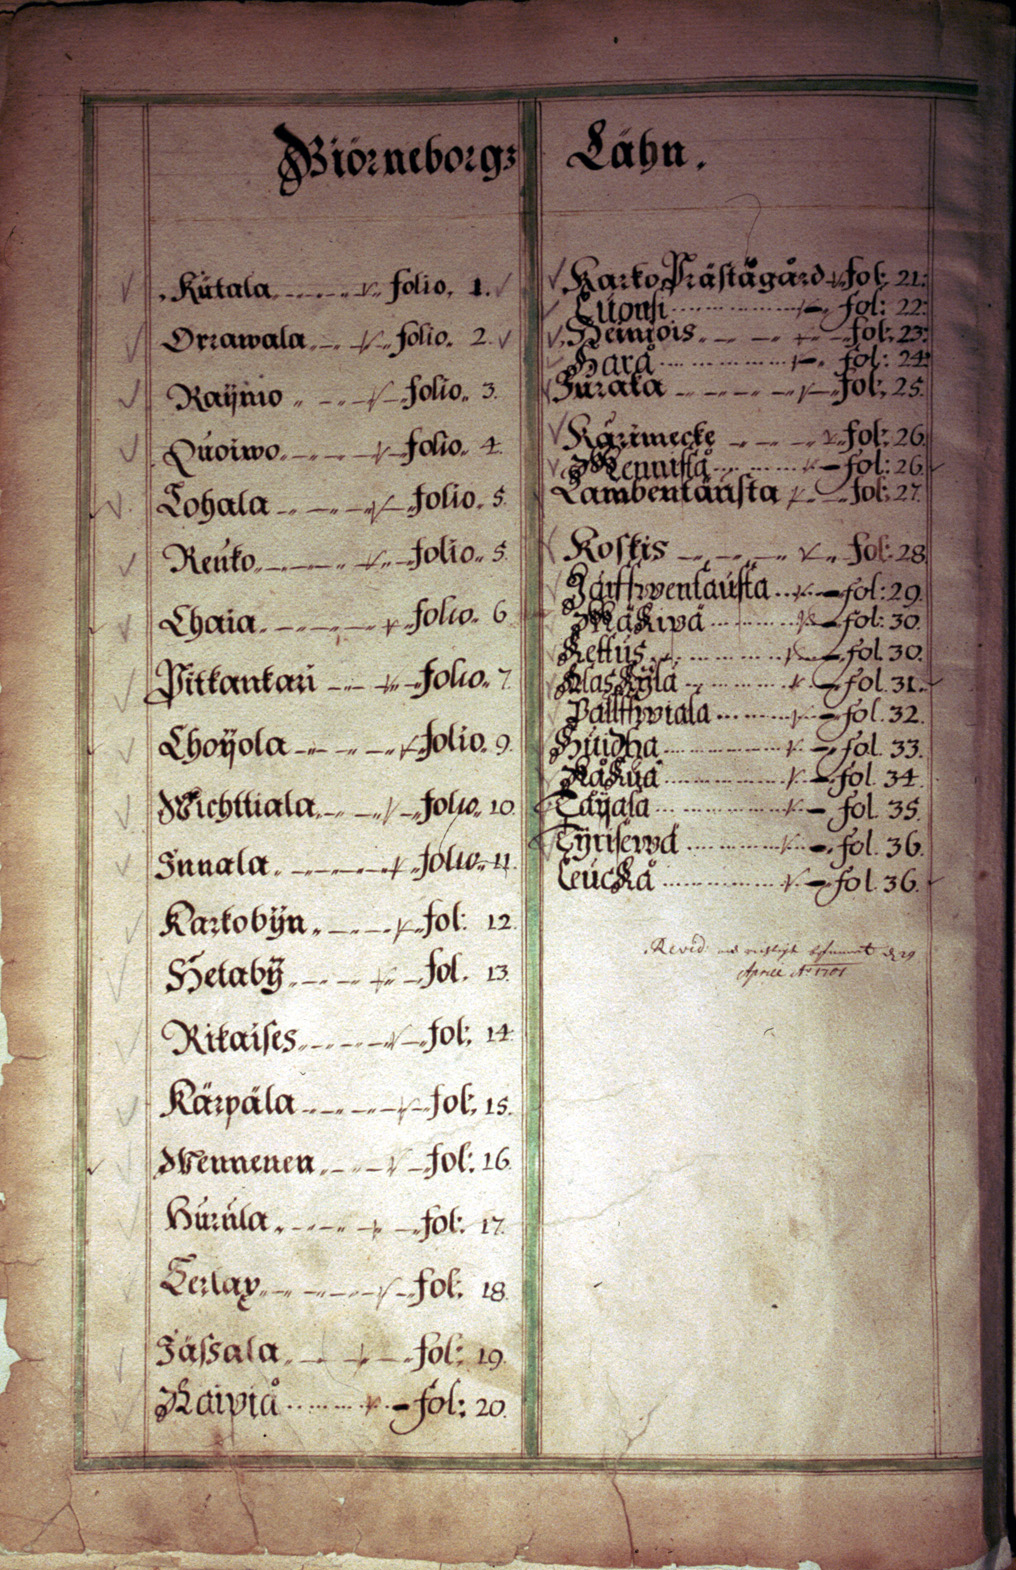 Biörneborgz Lähn.
Kütala folio. 1.
Orrawala folio. 2.
Raÿmo folio. 3.
Quoiwo folio. 4.
Tohala folio. 5.
Renko folio. 5.
Chaia folio. 6
Pitkankari folio. 7
Choÿola folio. 9.
Wichttiala folio. 10
Innala folio. 11
Karkobÿn fol: 12
Hetabÿ fol. 13.
Rikaises fol: 14
Kärpäla fol: 15.
Wennenen fol: 16
Hurula fol: 17.
Terlax fol: 18.
Jässala fol: 19
Kaipiå fol: 20.
Karko Prästägård fol: 21:
Luonsi fol: 22:
Heiniois fol: 23:
Hara fol: 24
Juraka fol: 25.
Kärimecke fol: 26.
Mennistå fol: 26.
Lambentausta fol: 27.
Koskis fol: 28
Järffwentausta fol: 29.
Mäkivä fol: 30.
Kettus fol. 30.
Klaskÿlä fol. 31.
Pallffwiala fol. 32.
Huidha fol. 33.
fol. 34.
Taÿala fol. 35.
Tÿrisewä fol. 36.
Leuckå fol. 36.
Revid: d 29
Aprill Ao 1701